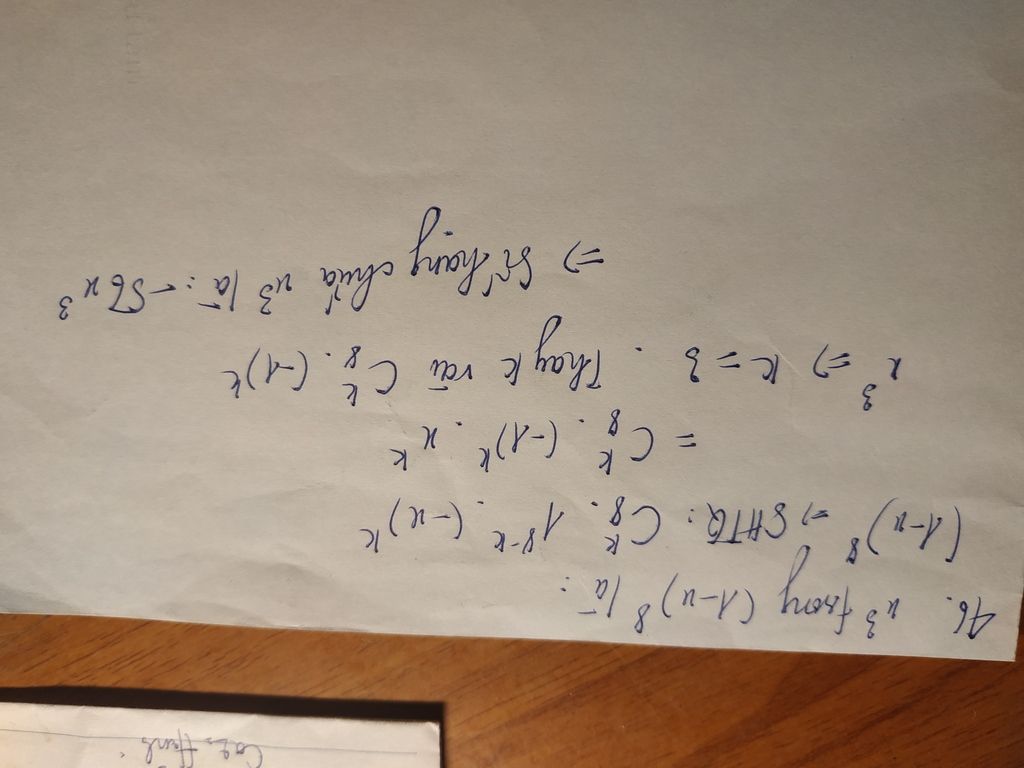 46. x³ trong (1-x)⁸ là:
(1-x)⁸ => SHTQ: C₈ᵏ . 1⁸⁻ᵏ . (-x)ᵏ
= C₈ᵏ . (-1)ᵏ . x ᵏ
x³ => K = 3 . Thay k vào C₈ᵏ . (-1)ᵏ
=> Số hạng chứa x³ là: -56 x³